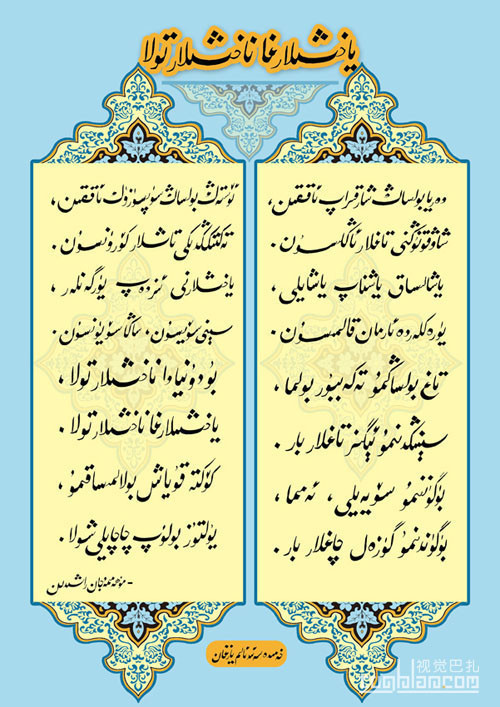 ياخشىلارغا ناخشىلار تولا
دەريا بولساڭ شارقىراپ ئاققىن،
شاۋقۇنۇڭنى تاغلار ئاڭلىسۇن.
ياشالساق ياشناپ ياشايلى،
يۈرەكلەردە ئارمان قالمىسۇن.
تاغ بولساڭمۇ تەكەببۇر بولما،
سېنىڭدىنمۇ ئېگىز تاغلار بار.
بۈگۈننىمۇ سۆيەيلى، ئەمما،
بۈگۈندىنمۇ گۈزەل چاغلار بار.
ئۆستەڭ بولساڭ سۈپسۈزۈك ئاققىن،
تەكتىڭدىكى تاشلار كۆرۈنسۇن.
ياخشىلارنى ئىزدەپ يۈرگەنلەر،
سېنى سۆيسۇن، ساڭا سۆيۈنسۇن.
بۇ دۇنيادا ناخشىلار تولا،
ياخشىلارغا ناخشىلار تولا.
كۆكتە قۇياش بولالمىساقمۇ،
يۇلتۇز بولۇپ چاچايلى شولا.
- مۇھەممەتجان راشىدىن
视觉巴扎